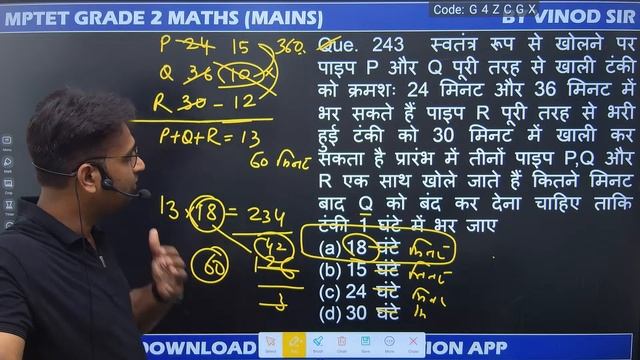 Code: G 4 Z C G X
MPTET GRADE 2 MATHS (MAINS)
BY VINOD SIR
P 24 15 360
Q 36 10
R 30 - 12
P+Q+R = 13
60 मिनट
13 × 18 = 234
42
60
Que. 243 स्वतंत्र रूप से खोलने पर
पाइप P और Q पूरी तरह से खाली टंकी
को क्रमशः 24 मिनट और 36 मिनट में
भर सकते हैं पाइप R पूरी तरह से भरी
हुई टंकी को 30 मिनट में खाली कर
सकता है प्रारंभ में तीनों पाइप P,Q और
R एक साथ खोले जाते हैं कितने मिनट
बाद Q को बंद कर देना चाहिए ताकि
टंकी 1 घंटे में भर जाए
(a) 18 घंटे मिनट
(b) 15 घंटे मिनट
(c) 24 घंटे मिनट
(d) 30 घंटे
DOWNLOAD
ION APP